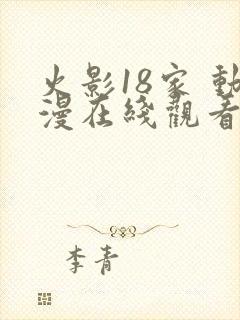 火影18家 動
漫在綫觀看
李青